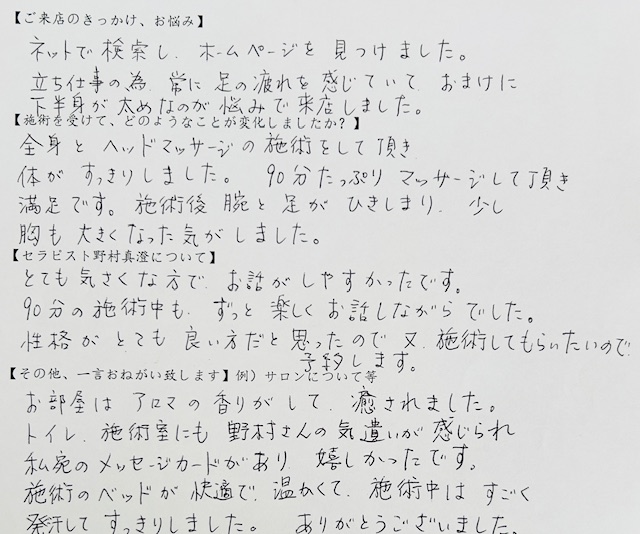 【ご来店のきっかけ、お悩み】
ネットで検索し、ホームページを見つけました。
立ち仕事の為、常に足の疲れを感じていて、おまけに
下半身が太めなのが悩みで来店しました。
【施術を受けて、どのようなことが変化しましたか？】
全身とヘッドマッサージの施術をして頂き
体がすっきりしました。 90分たっぷりマッサージして頂き
満足です。施術後、腕と足がひきしまり、少し
胸も大きくなった気がしました。
【セラピスト野村真澄について】
とても気さくな方で、お話がしやすかったです。
90分の施術中も、ずっと楽しくお話しながらでした。
性格がとても良い方だと思ったので、又、施術してもらいたいので
予約します。
【その他、一言おねがい致します】例）サロンについて等
お部屋はアロマの香りがして、癒されました。
トイレ、施術室にも野村さんの気遣いが感じられ
私宛のメッセージカードがあり、嬉しかったです。
施術のベッドが快適で、温かくて、施術中はすごく
発汗してすっきりしました。 ありがとうございました。